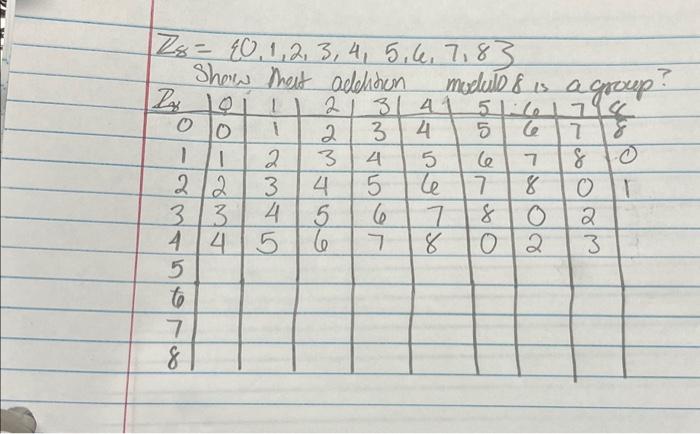 Z₈ = {0, 1, 2, 3, 4, 5, 6, 7, 8}
Show that addition modulo 8 is a group?
Z₈ 0 1 2 3 4 5 6 7 8
0 0 1 2 3 4 5 6 7 8
1 1 2 3 4 5 6 7 8 0
2 2 3 4 5 6 7 8 0 1
3 3 4 5 6 7 8 0 2
4 4 5 6 7 8 0 2 3
5
6
7
8